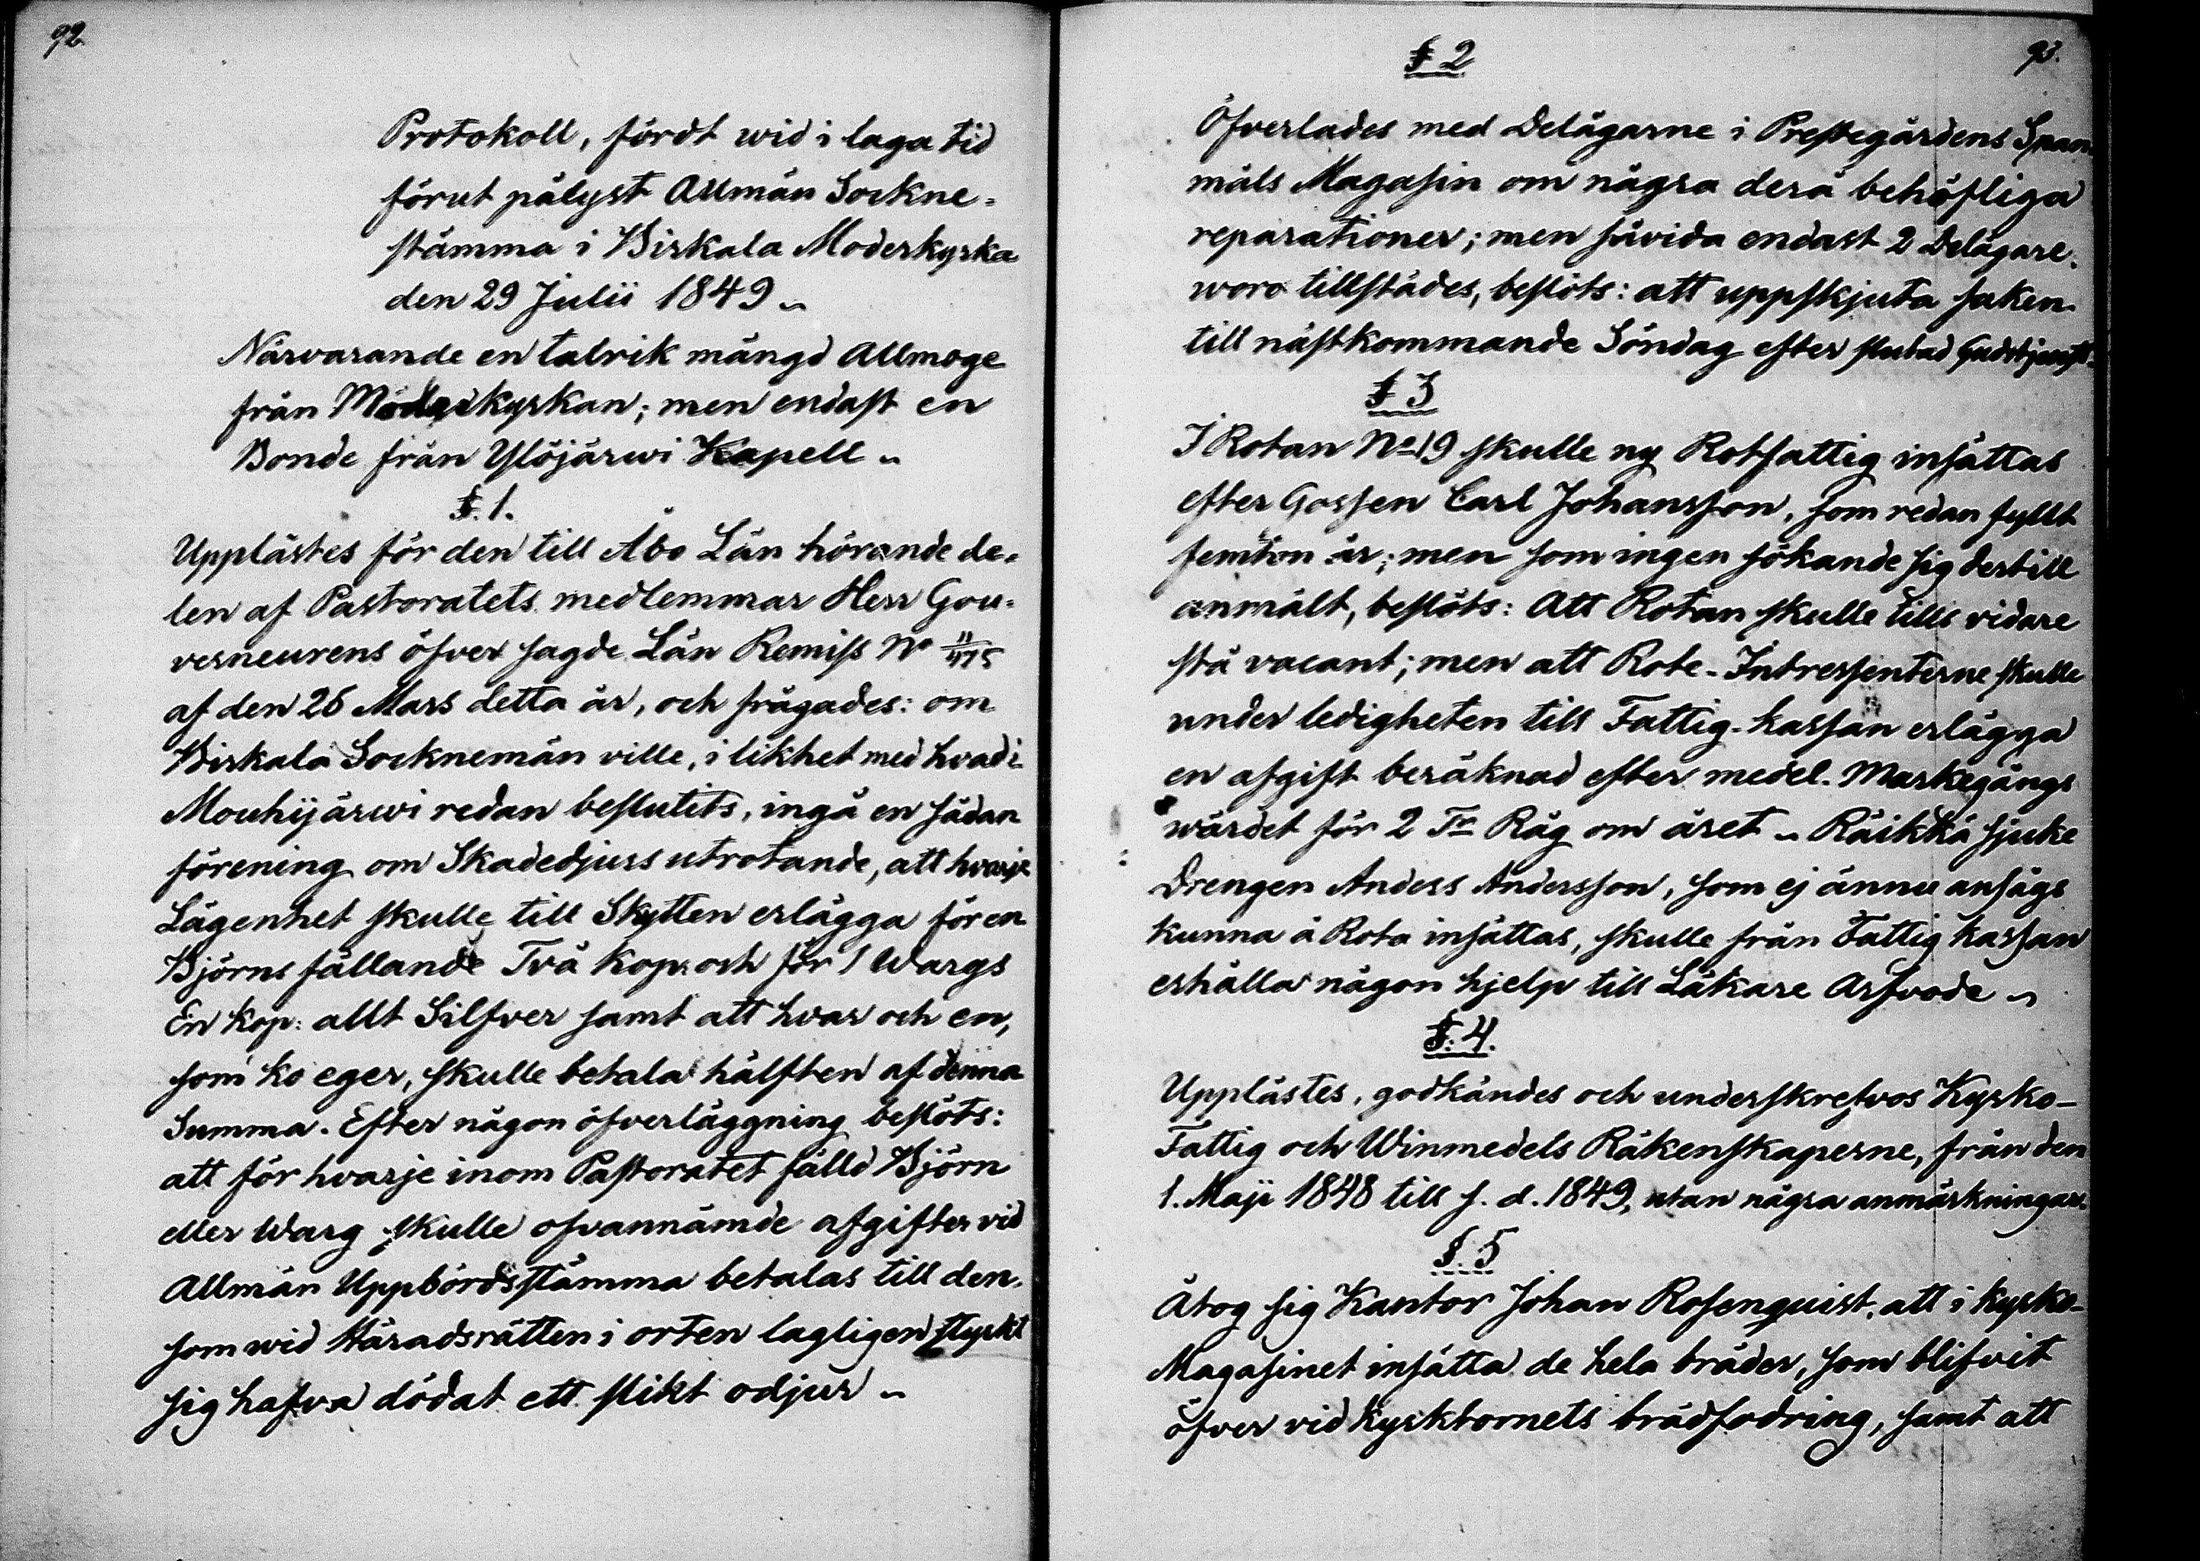 92.
Protokoll, fördt wid i laga tid
förut pålyst Allmän Sockne-
stämma i Birkala Moderkyrka
den 29 Julii 1849 ~
Närvarande en talrik mängd Allmoge
från Moderkyrkan; men endast en
Bonde från Ylöjärwi Kapell ~
§. 1.
Upplästes för den till Åbo Län hörande de-
len af Pastoratets medlemmar Herr Gou-
verneurens öfver sagde Län Remiss No
af den 26 Mars detta år, och frågades: om
Birkala Socknemän ville, i likhet med hvad i
Mouhijärwi redan beslutits, ingå en sådan
förening om Skadedjurs utrotande, att hvarje
Lägenhet skulle till Skytten erlägga för en
Björns fällande Två kop: och för 1 Wargs
En kop: allt Silfver samt att hvar och en,
som ko eger, skulle betala hälften af denna
Summa. Efter någon öfverläggning beslöts:
att för hvarje inom Pastoratet fälld Björn
eller Warg skulle ofvannämde afgifter vid
Allmän Uppbördsstämma betalas till den,
som wid Häradsrätten i orten lagligen styrkt
sig hafva dödat ett slikt odjur ~
93.
§ 2
Öfverlades med Delägarne i Prestegårdens Span-
måls Magasin om några derå behöfliga
reparationer; men såvida endast 2 Delägare
woro tillstädes, beslöts: att uppskjuta saken
till nästkommande Söndag efter slutad Gudstjenst.
§ 3
I Rotan No 19 skulle ny Rotfattig insättas
efter Gossen Carl Johansson, som redan fyllt
femton år; men som ingen sökande sig dertill
anmält, beslöts: Att Rotan skulle tills vidare
stå vacant; men att Rote-Intressenterne skulle
under ledigheten till Fattig-kassan erlägga
en afgift beräknad efter medel-Markegångs
wärdet för 2 Tr Råg om året ~ Räikkä sjuke
Drengen Anders Andersson, som ej ännu ansågs
kunna å Rota insättas, skulle från Fattig kassan
erhålla någon hjelp till Läkare Arfvode ~
§. 4.
Upplästes, godkändes och underskrefvos Kyrko-
Fattig och Winmedels Räkenskaperne, från den
1. Maji 1848 till s. d. 1849, utan några anmärkningar.
§. 5
Åtog sig Kantor Johan Rosenquist, att i kyrko-
Magasinet insätta de hela bräder, som blifvit
öfver vid Kyrktornets brädfodring, samt att